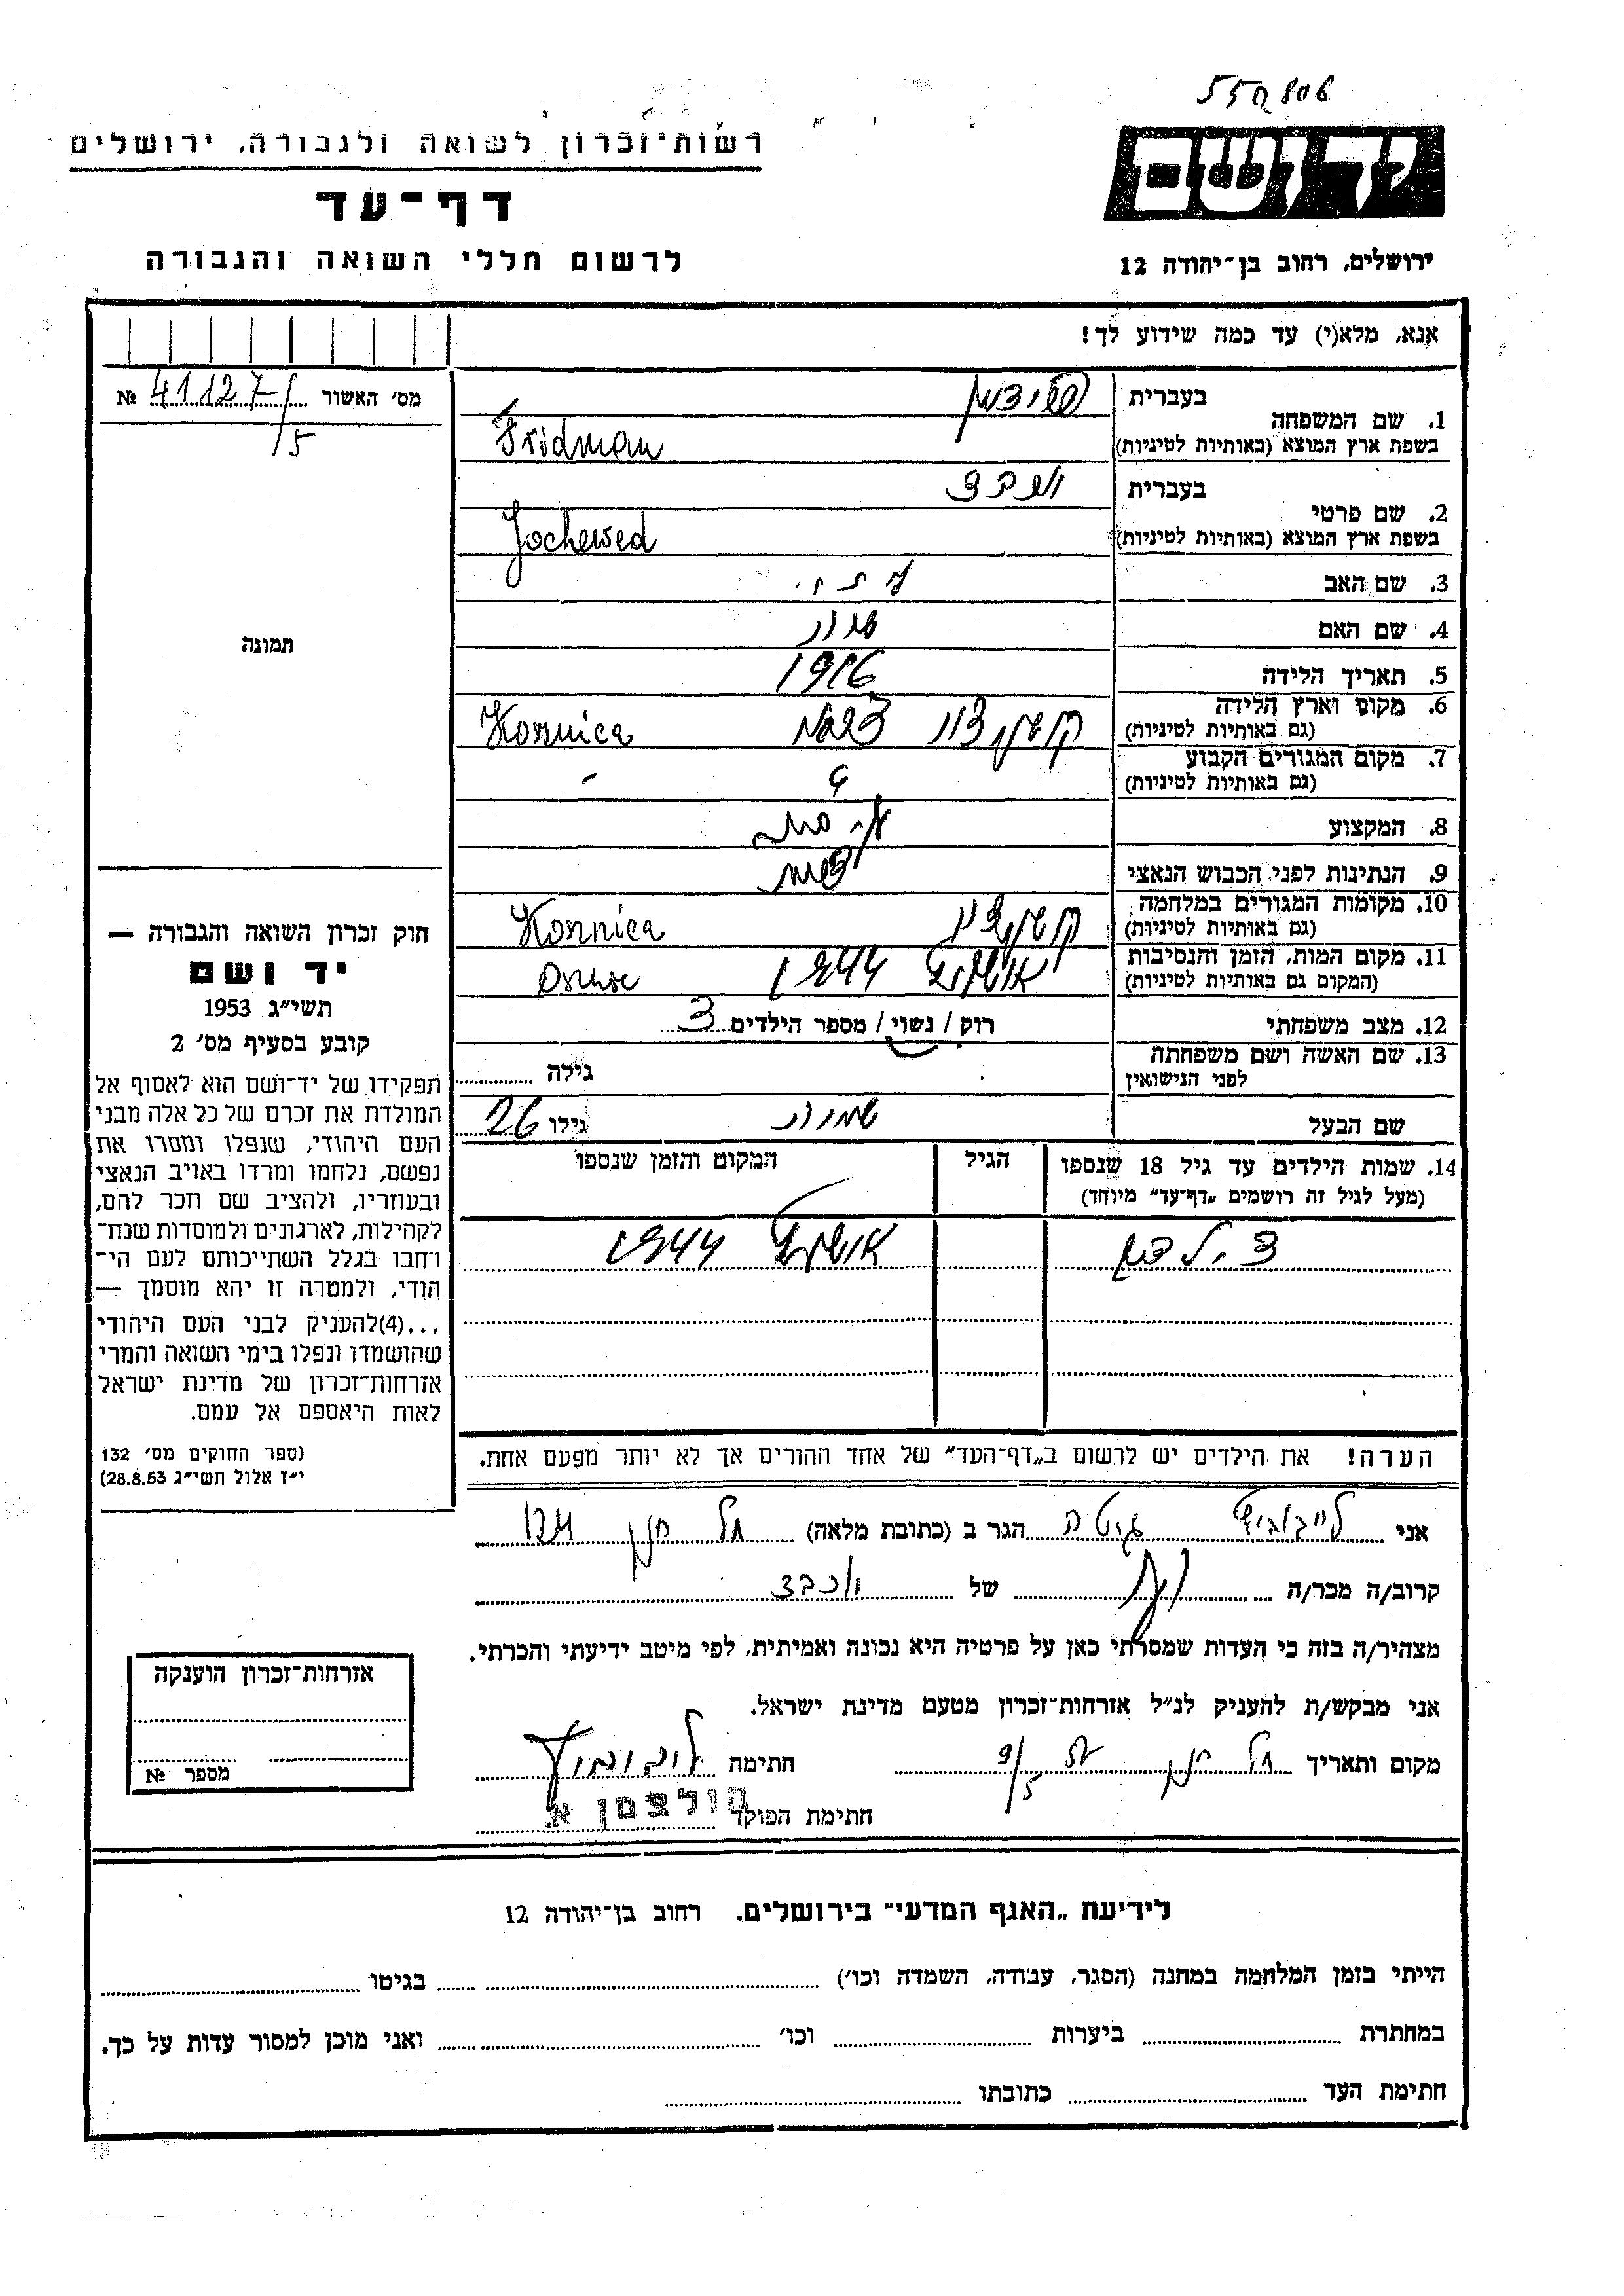 רשות־זכרון לשואה ולגבורה, ירושלים
דף־עד
לרשום חללי השואה והגבורה
ירושלים, רחוב בן־יהודה 12
אנא, מלא(י) עד כמה שידוע לך!
מס׳ האשור 41127/5 №
תמונה
1. שם המשפחה
בעברית פרידמן
בשפת ארץ המוצא (באותיות לטיניות) Fridman
2. שם פרטי
בעברית יוכבד
בשפת ארץ המוצא (באותיות לטיניות) Jochewed
3. שם האב
4. שם האם
5. תאריך הלידה 1916
6. מקום וארץ הלידה
(גם באותיות לטיניות)
7. מקום המגורים הקבוע
(גם באותיות לטיניות)
8. המקצוע
9. הנתינות לפני הכבוש הנאצי
10. מקומות המגורים במלחמה
(גם באותיות לטיניות)
11. מקום המות, הזמן והנסיבות
(המקום גם באותיות לטיניות) אושויץ 1944
12. מצב משפחתי רווק / נשוי / מספר הילדים 3
13. שם האשה ושם משפחתה
לפני הנישואין
גילה
שם הבעל
גילו 26
14. שמות הילדים עד גיל 18 שנספו
(מעל לגיל זה רושמים „דף־עד״ מיוחד)
הגיל
המקום והזמן שנספו
3 ילדים אושויץ 1944
הערה! את הילדים יש לרשום ב„דף־העד״ של אחד ההורים אך לא יותר מפעם אחת.
חוק זכרון השואה והגבורה —
יד ושם
תשי״ג 1953
קובע בסעיף מס׳ 2
תפקידו של יד־ושם הוא לאסוף אל
המולדת את זכרם של כל אלה מבני
העם היהודי, שנפלו ומסרו את
נפשם, נלחמו ומרדו באויב הנאצי
ובעוזריו, ולהציב שם וזכר להם,
לקהילות, לארגונים ולמוסדות שנח־
רחבו בגלל השתייכותם לעם הי־
הודי, ולמטרה זו יהא מוסמך —
...(4)להעניק לבני העם היהודי
שהושמדו ונפלו בימי השואה והמרי
אזרחות־זכרון של מדינת ישראל
לאות היאספם אל עמם.
(ספר החוקים מס׳ 132
י״ז אלול תשי״ג 28.8.53)
אני לייבוביץ גיטה הגר ב (כתובת מלאה) תל חנן
קרוב/ה מכר/ה של יוכבד
מצהיר/ה בזה כי העדות שמסרתי כאן על פרטיה היא נכונה ואמיתית, לפי מיטב ידיעתי והכרתי.
אני מבקש/ת להעניק לנ״ל אזרחות־זכרון מטעם מדינת ישראל.
מקום ותאריך תל חנן חתימה
חתימת הפוקד הולצמן א.
אזרחות־זכרון הוענקה
מספר №
לידיעת „האגף המדעי״ בירושלים. רחוב בן־יהודה 12
הייתי בזמן המלחמה במחנה (הסגר, עבודה, השמדה וכו׳) בגיטו
במחתרת ביערות וכו׳ ואני מוכן למסור עדות על כך.
חתימת העד כתובתו